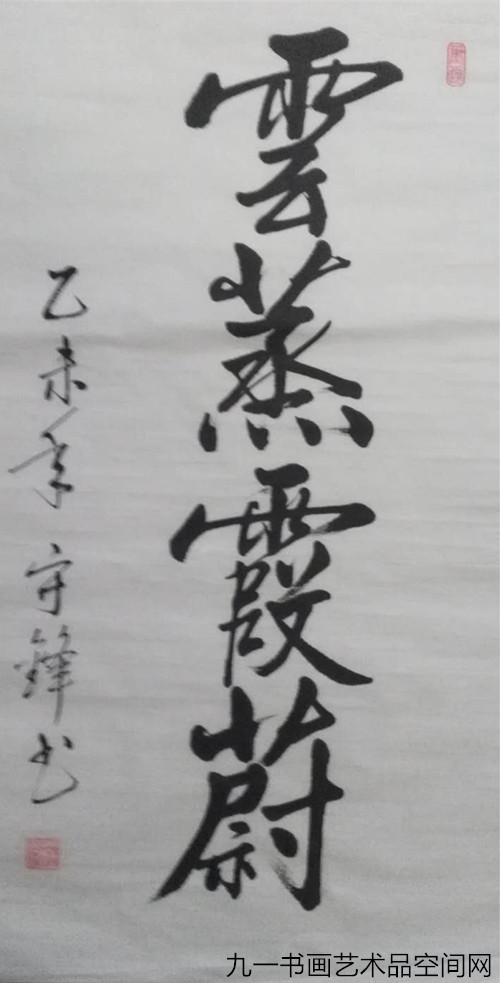 雲蒸霞蔚
乙未年守鋒书
九一书画艺术品空间网